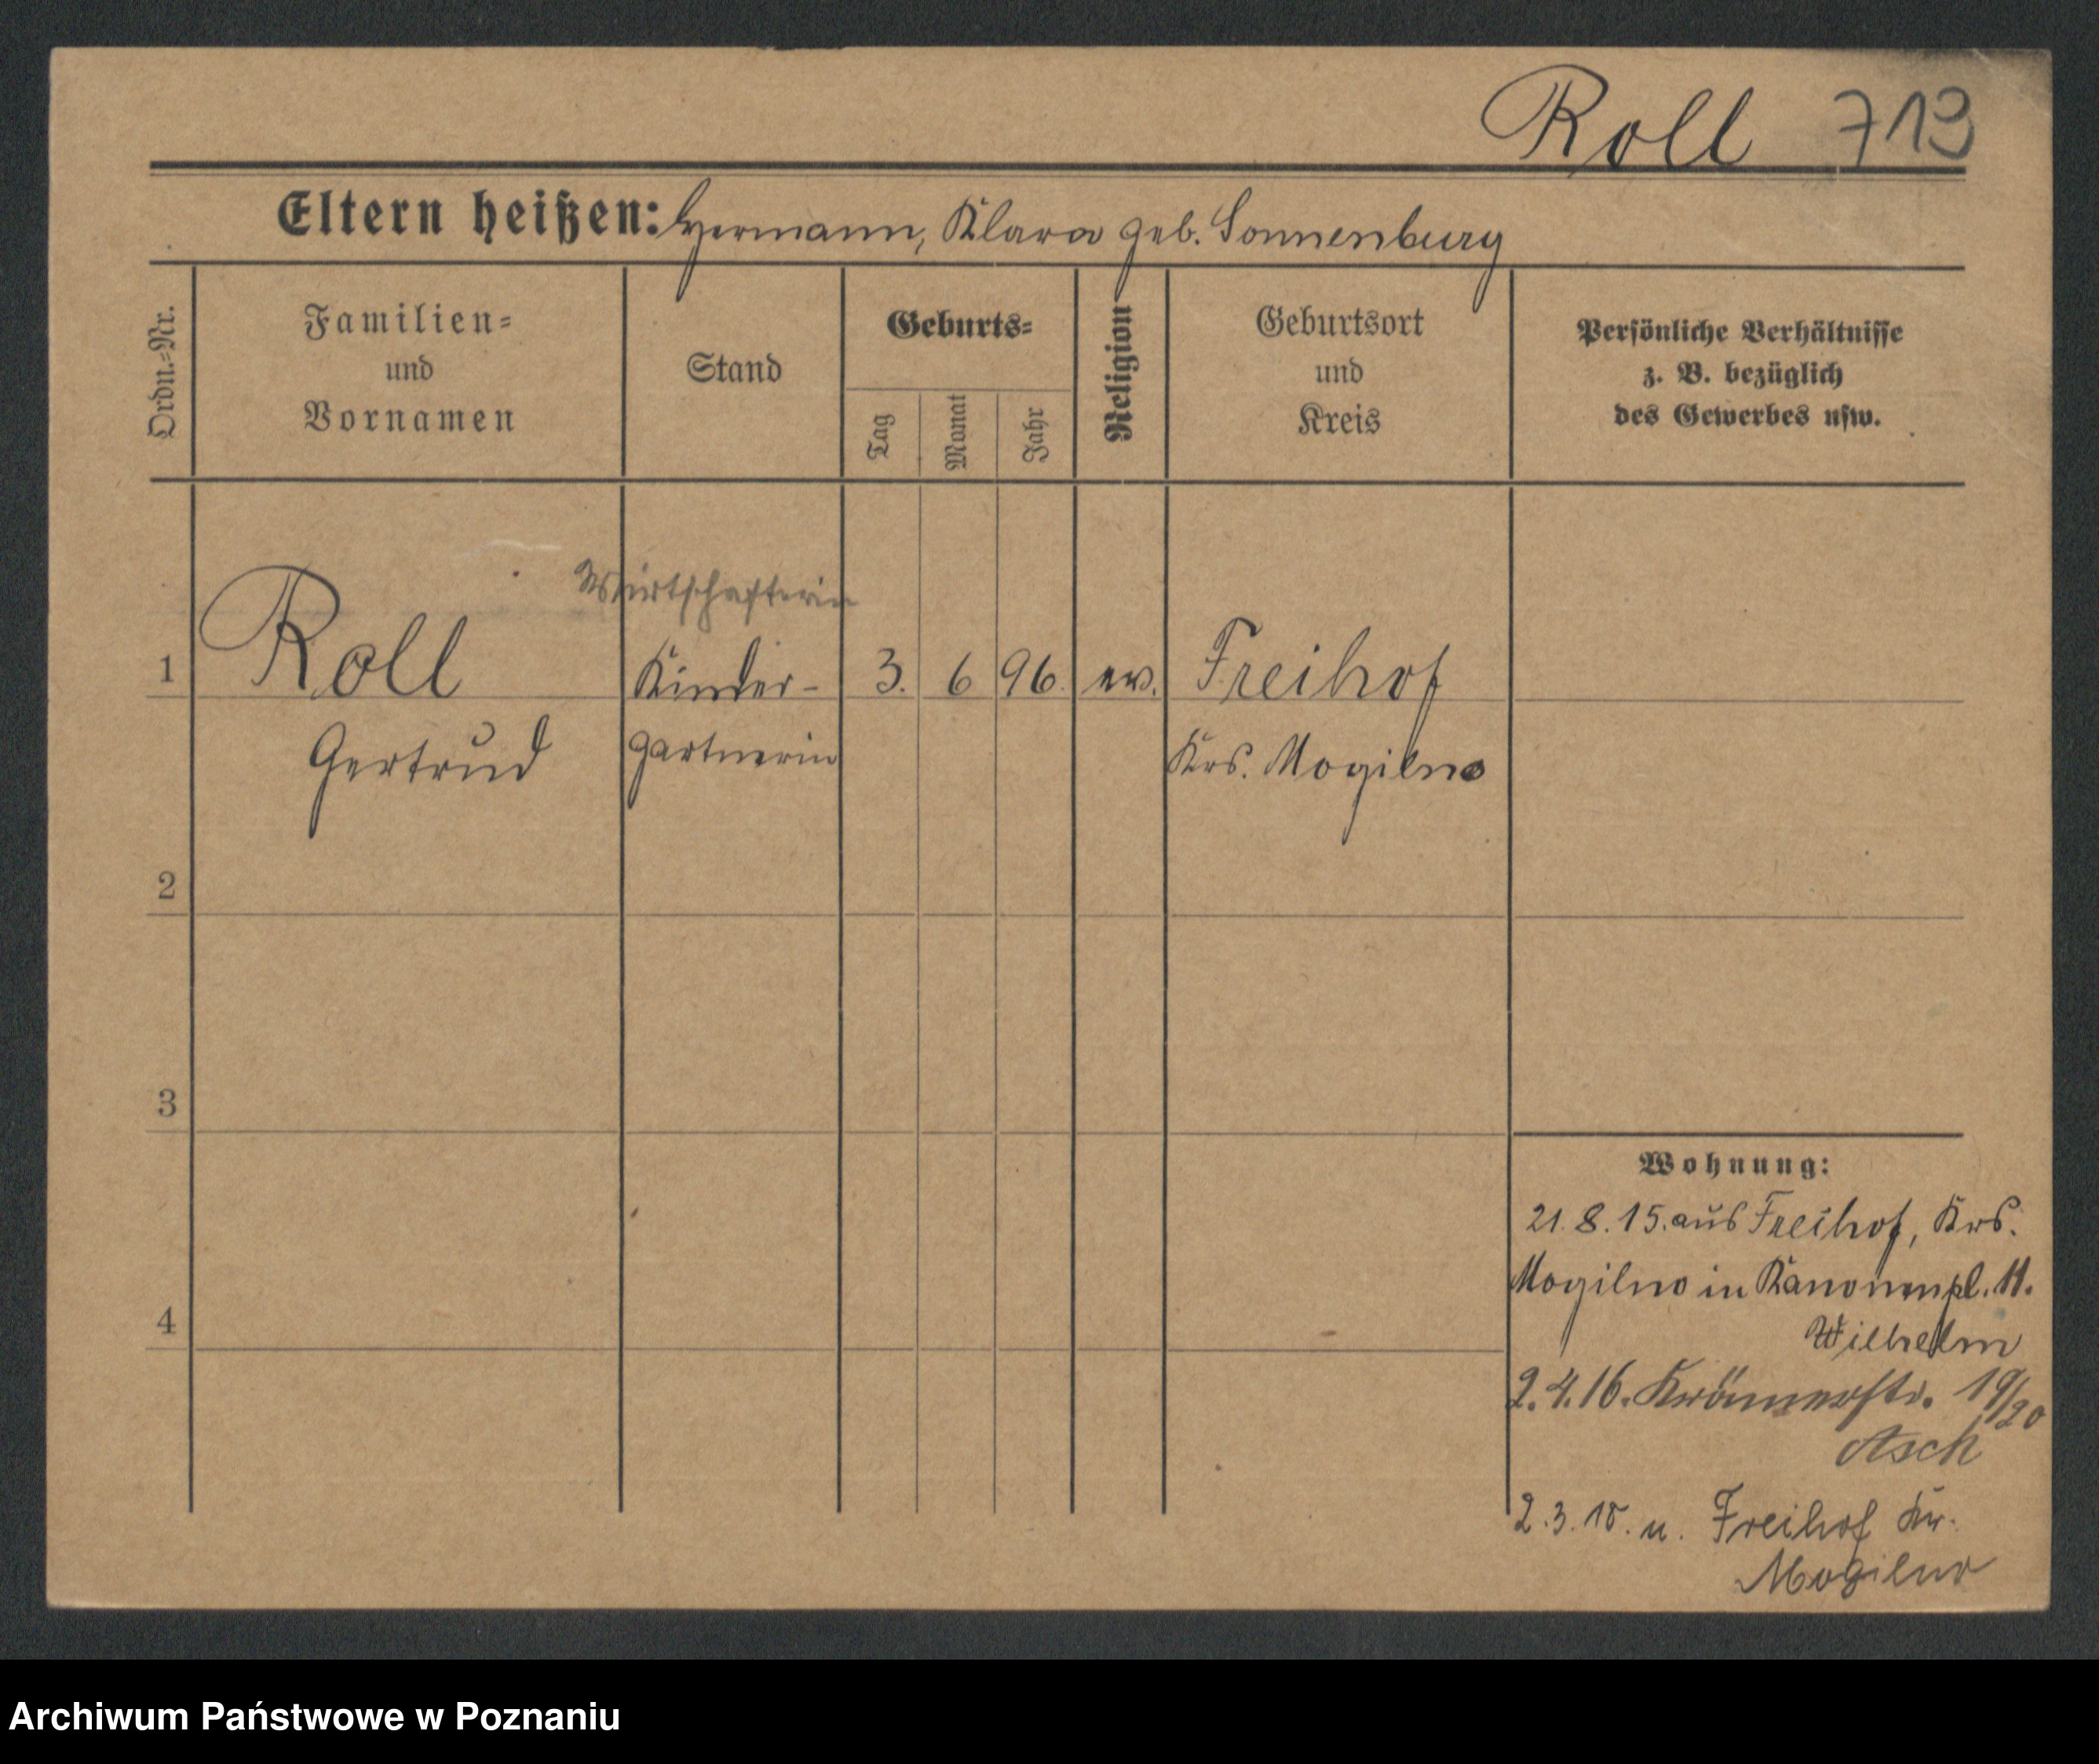 Roll 713
Eltern heißen: Hermann, Klara geb. Sonnenburg
Ordn.=Nr.
Familien=
und
Vornamen
Stand
Geburts=
Tag
Monat
Jahr
Religion
Geburtsort
und
Kreis
Persönliche Verhältnisse
z. B. bezüglich
des Gewerbes usw.
Wirtschafterin
1 Roll Kinder- 3. 6 96. ev. Freihof
Gertrud gartnerin Krs. Mogilno
2
3
4
Wohnung:
21. 8. 15. aus Freihof, Krs.
Mogilno in Kanonenpl. 11.
Wilhelm
2. 4. 16. Krämerstr. 19/20
Asch
2. 3. 18. n. Freihof Kr.
Mogilno
Archiwum Państwowe w Poznaniu